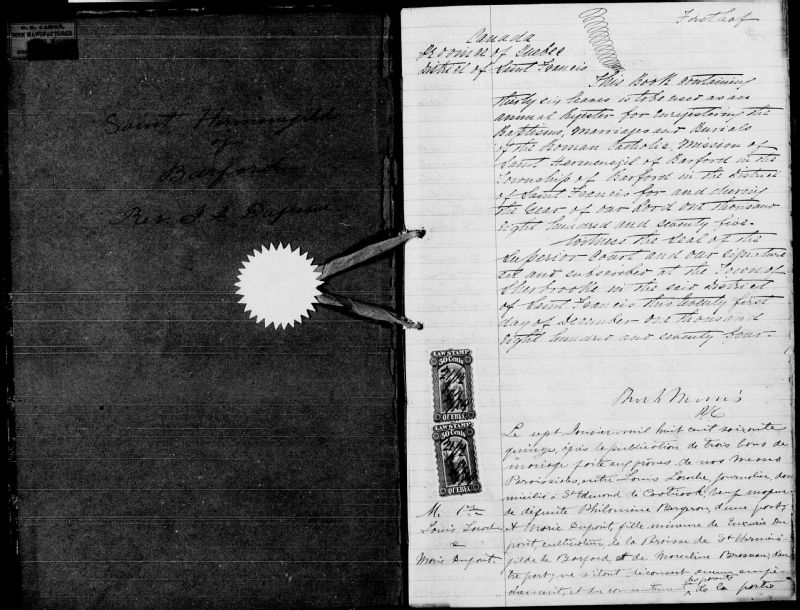 BOOK MANUFACTURER
Saint
of
Barford
Rev. J. A.
First leaf
Canada
Province of Quebec
District of Saint Francis
This Book containing
thirty six leaves is to be used as an
annual Register for Enregistering the
Baptisms, Marriages and Burials
of the Roman Catholic Mission of
Saint Hermenegil of Barford in the
Township of Barford in the District
of Saint Francis for and during
the Year of our Lord One thousand
eight hundred and seventy five.
Witness the Seal of the
Superior Court and our Signature
set and subscribed at the Town of
Sherbrooke in the said District
of Saint Francis this twenty first
day of December One thousand
eight hundred and seventy four.
LAW STAMP
50 Cents
QUEBEC
LAW STAMP
50 Cents
QUEBEC
Le sept Janvier mil huit cent soixante
quinze, après la publication de trois bans de
mariage faite aux prônes de nos Messes
Paroissiales, entre Louis journalier, do-
micilié à St Edmond de Coaticook, veuf majeur
de défunte Philomène Bergeron, d'une part,
et Marie Dupont, fille mineure de Du-
pont, cultivateur de la Paroisse de St Herméné-
de Barford, et de d'au-
tre part, ne s'étant découvert aucun empê-
chement, et du consentement des parents de la partie
M. 1er
Louis
&
Marie Dupont.